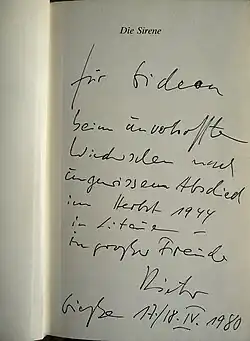 Die Sirene
für Gideon
beim unverhofften
Wiedersehen nach
ungewissem Abschied
im Herbst 1944
in Litauen
In großer Freude
Dieter
Gießen 17/18.IV.1980